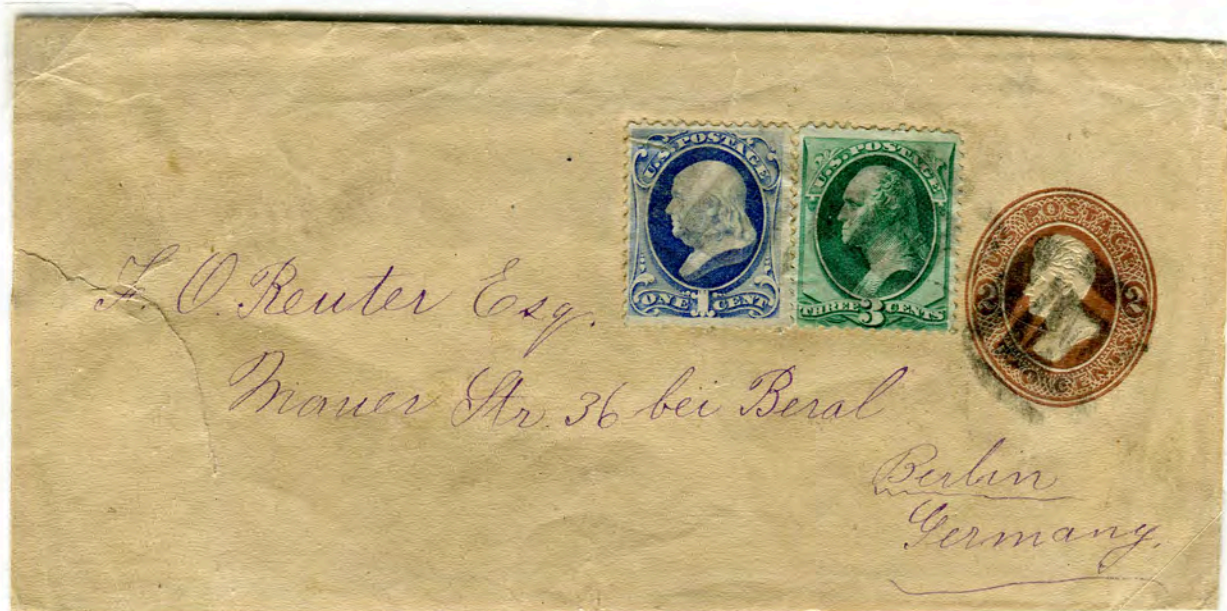 U.S. POSTAGE
ONE 1 CENT
U.S. POSTAGE
THREE 3 CENTS
U.S. POSTAGE
2 2
TWO CENTS
F. O. Reuter Esq.
Mauer Str. 36 bei Beral
Berlin
Germany.